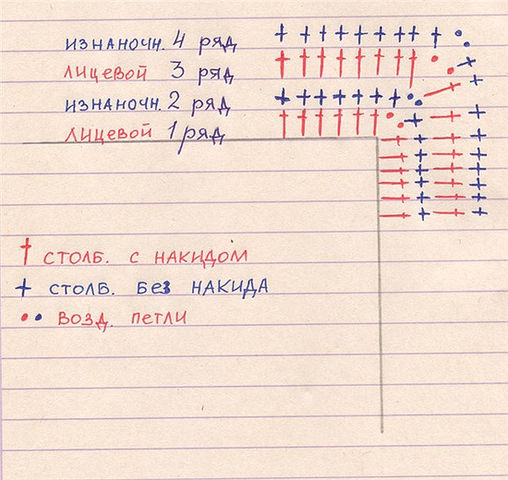 изнаночн. 4 ряд
лицевой 3 ряд
изнаночн. 2 ряд
лицевой 1 ряд
столб. с накидом
столб. без накида
возд. петли